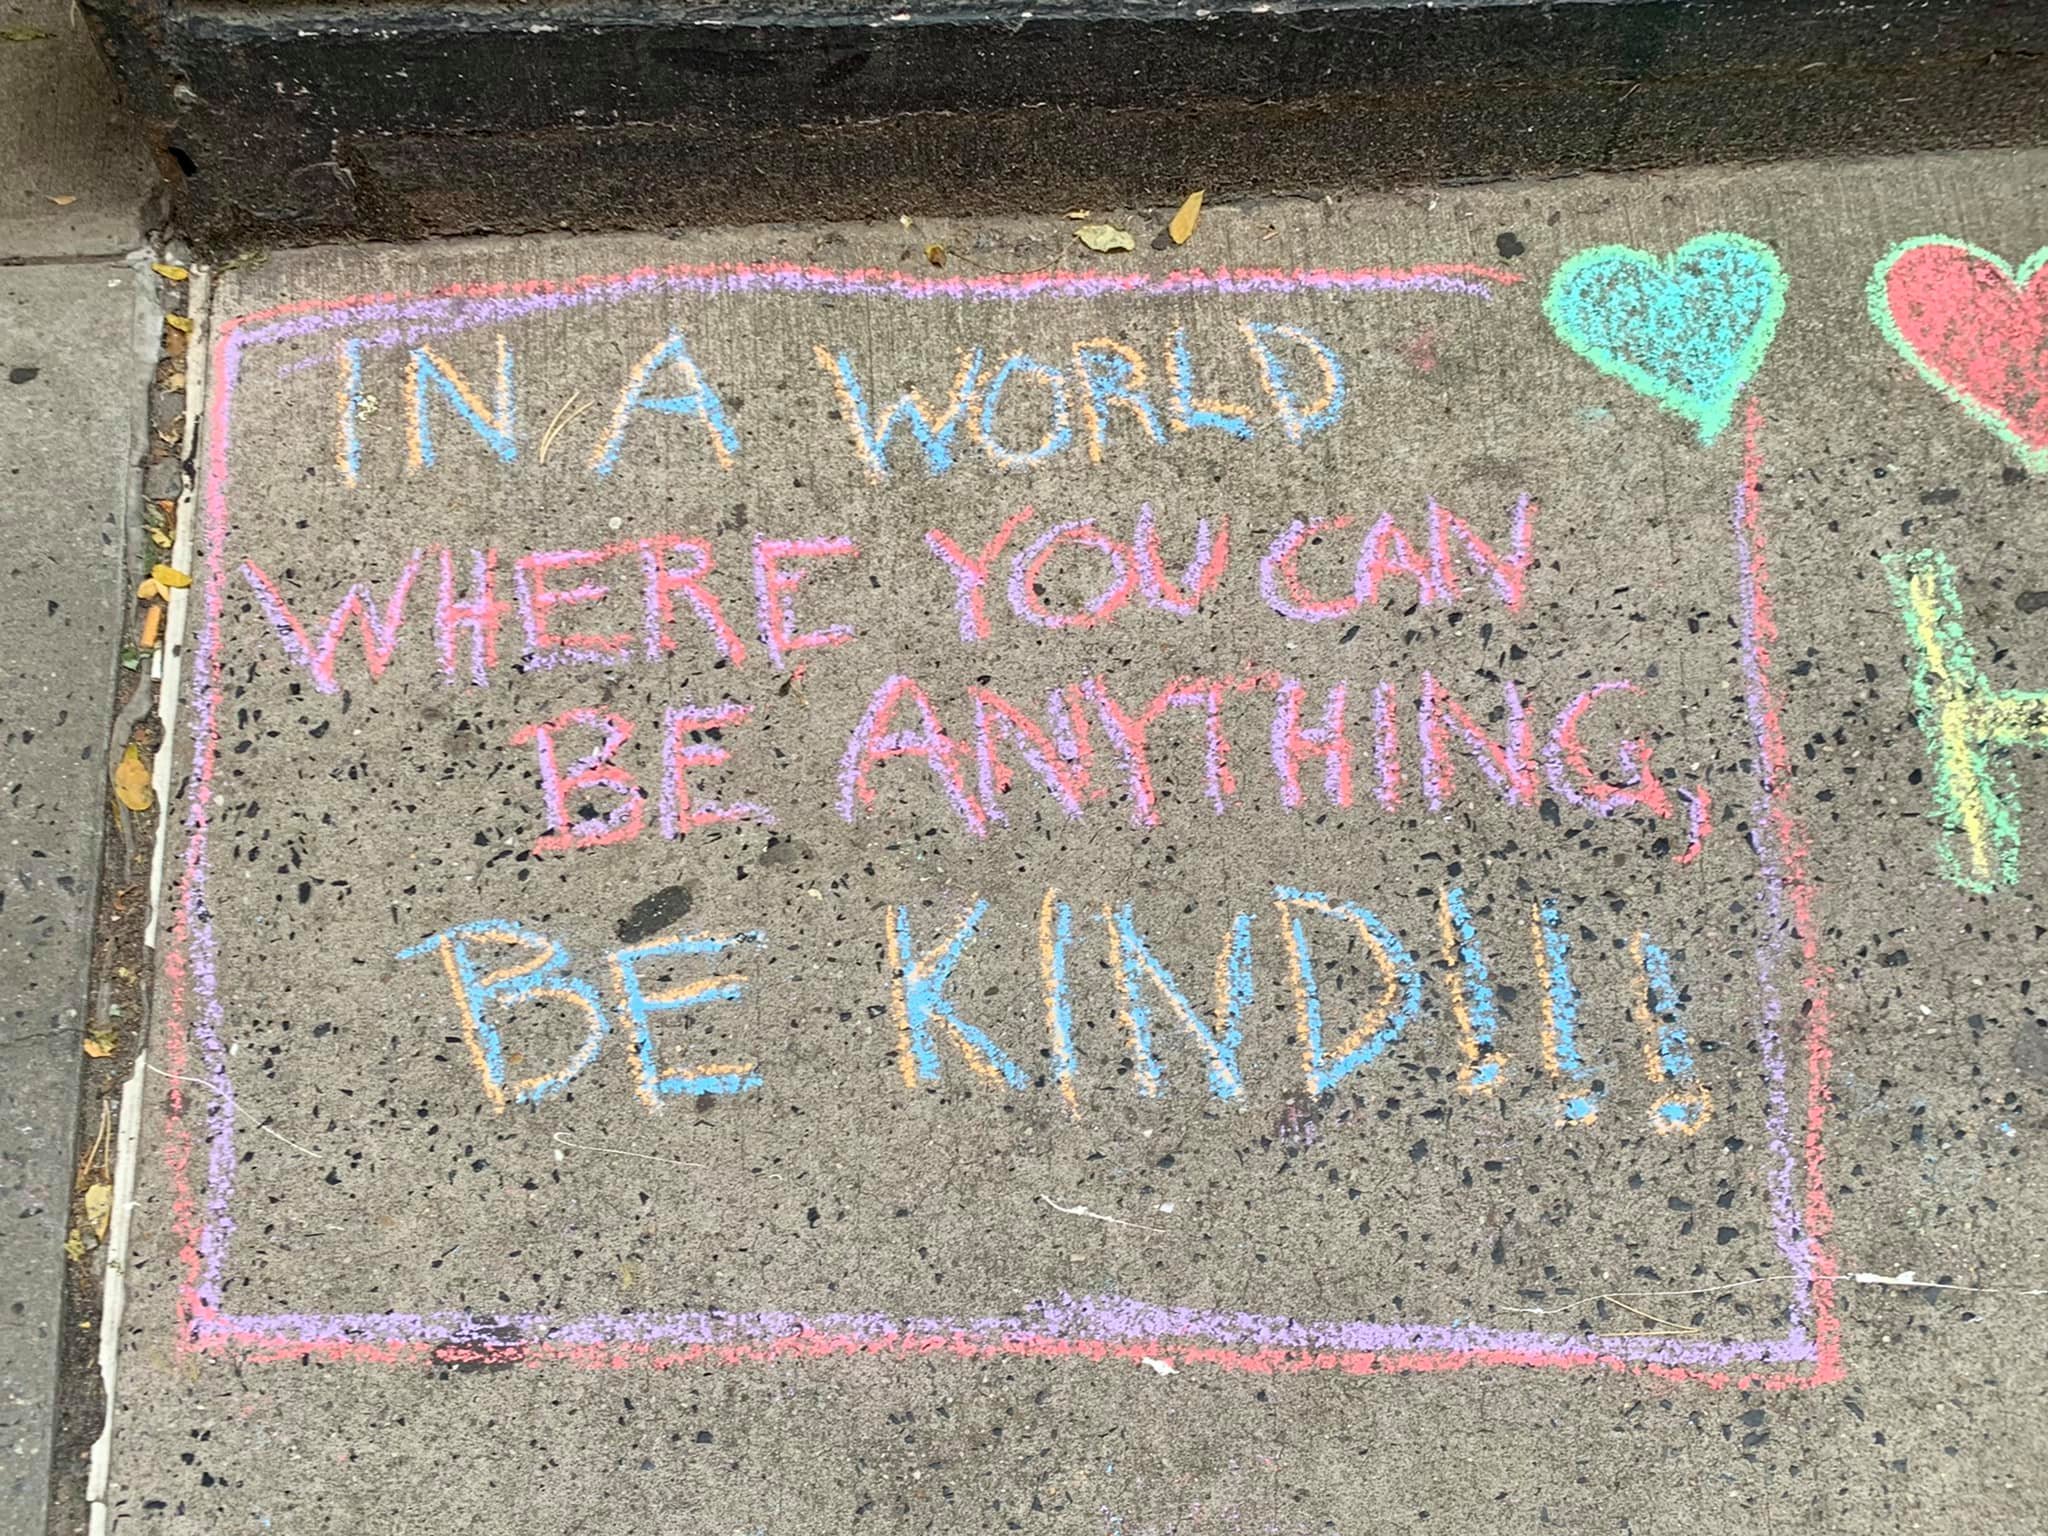 IN A WORLD
WHERE YOU CAN
BE ANYTHING,
BE KIND!!!
H